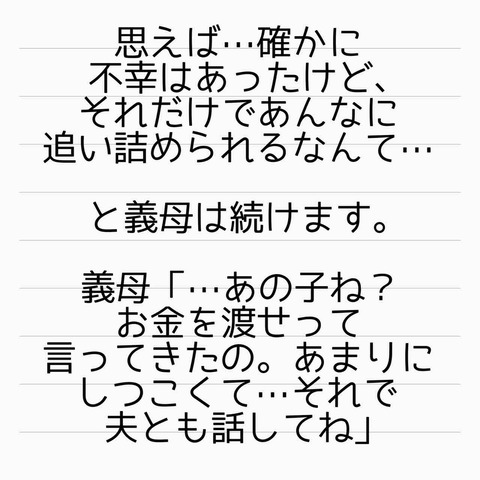 思えば…確かに
不幸はあったけど、
それだけであんなに
追い詰められるなんて…
と義母は続けます。
義母「…あの子ね？
お金を渡せって
言ってきたの。あまりに
しつこくて…それで
夫とも話してね」